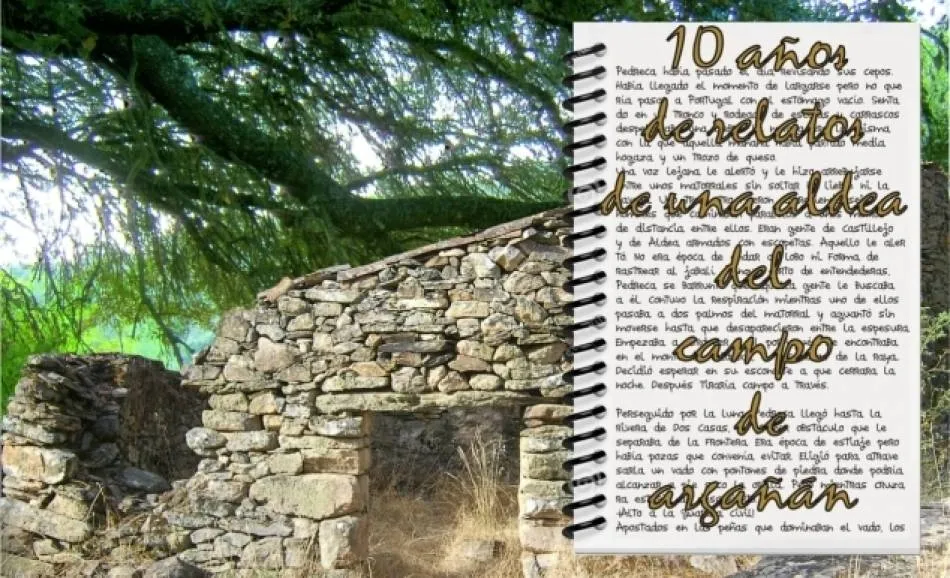 10 años
de relatos
de una aldea
del
campo
de
argañán
Pedreca había pasado el día revisando sus cepos.
Había llegado el momento de largarse pero no que
ría pasar a Portugal con el estómago vacío. Senta
do en un tronco y rodeado de y carrascos
con la que aquella mañana había partido media
hogaza y un trozo de queso.
Una voz lejana le alertó y le hizo
entre unos matorrales sin soltar ni la
de distancia entre ellos. Eran gente de Castillejo
y de Aldea armados con escopetas. Aquello le aler
tó. No era época de andar al lobo ni forma de
rastrear al jabalí de entendederas.
Pedreca se barruntó que gente le buscaba
a él. Contuvo la respiración mientras uno de ellos
pasaba a dos palmos del matorral y aguantó sin
moverse hasta que desaparecieron entre la espesura.
Empezaba a encontraba
en el monte de la Raya.
Decidió esperar en su escondite a que cerrara la
noche. Después tiraría campo a través.
Perseguido por la luna, Pedreca llegó hasta la
rivera de Dos Casas, obstáculo que le
separaba de la frontera. Era época de estiaje pero
había pozas que convenía evitar. Eligió para atrave
sarla un vado con pontones de piedra donde podría
alcanzar mientras cruza
¡Alto a la Guardia Civil!
Apostados en las peñas que dominaban el vado, los